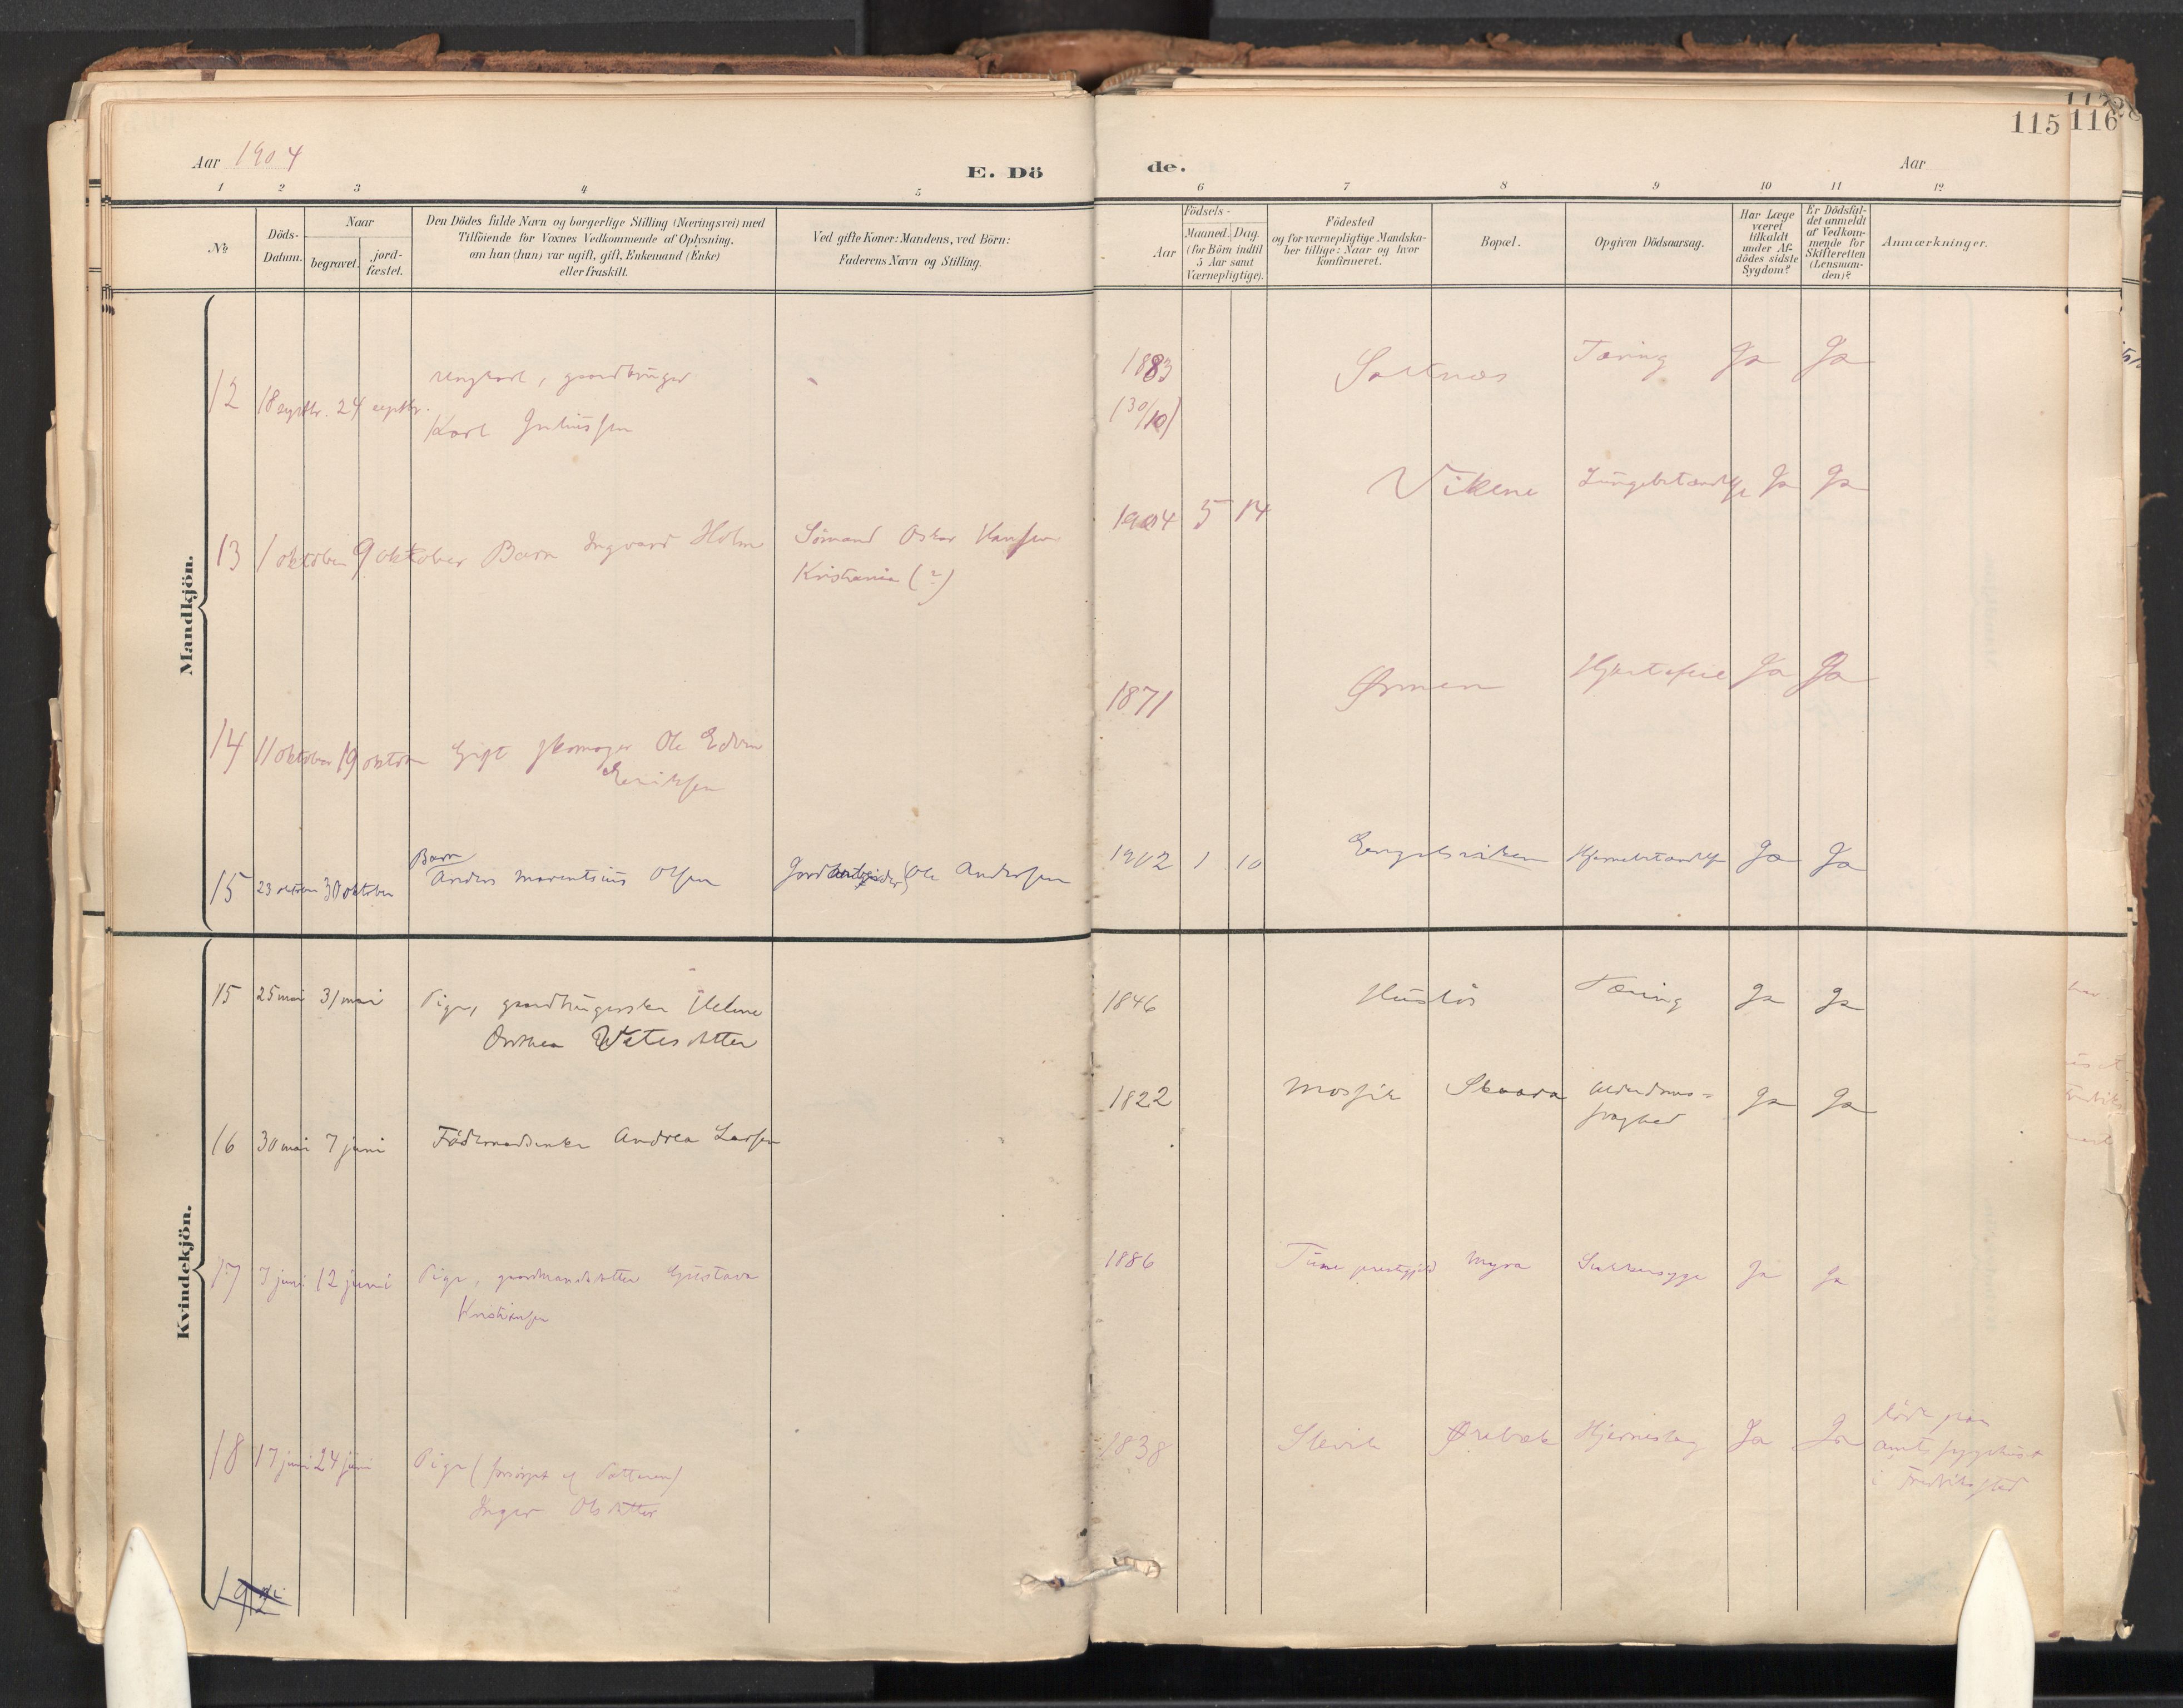 115 116
Aar 1904
E. Dö de.
Aar
1 2 3 4 5 6 7 8 9 10 11 12
No
Döds-Datum.
Naar
begravet.
jord-fæstet.
Den Dödes fulde Navn og borgerlige Stilling (Næringsvei) med
Tilföiende for Voxnes Vedkommende af Oplysning,
om han (hun) var ugift, gift, Enkemand (Enke)
eller fraskilt.
Ved gifte Koner: Mandens, ved Börn:
Faderens Navn og Stilling.
Födsels-
Aar
Maaned. Dag.
(for Börn indtil
5 Aar samt
Værnepligtige).
Födested
og for værnepligtige Mandska-
ber tillige: Naar og hvor
konfirmeret.
Bopæl.
Opgiven Dödsaarsag.
Har Læge
været
tilkaldt
under Af-
dödes sidste
Sygdom?
Er Dödsfal-
det anmeldt
af Vedkom-
mende for
Skifteretten
(Lensman-
den)?
Anmærkninger.
Mandkjön.
12 18 septbr. 24 septbr. ungkarl, gaardbruger
Karl Juliussen
1883
(30/10)
Tæring Ja Ja
13 1 oktober 9 oktober Barn Ingvard Holm Sömand Oskar Hansen
Kristiania (?)
1904 5 14 Vikene Lungebetændelse Ja Ja
14 11 oktober 19 oktober Gift skomager Ole Edvin
Eriksen
1871 Ørmen Hjertefeil Ja Ja
15 23 oktober 30 oktober Barn
Anders Marentsius Olsen Jordarbeider Ole Andersen
1902 1 10 Engelsviken Hjernebetændelse Ja Ja
Kvindekjön.
15 25 mai 31 mai Pige, gaardbrugerske Helene
Dorthea
1846 Huslös Tæring Ja Ja
16 30 mai 7 juni Föderaadsenke Andrea Larsen
1822 Mosjöe Skaara Alderdoms-
svaghed Ja Ja
17 7 juni 12 juni Pige, gaardmandsdatter Gustava
Kristiansen
1886 Tune prestegjeld Myra Sukkersyge Ja Ja
18 17 juni 24 juni Pige (forsörget af Fattigv.)
Inger Olsdatter
1838 Slevik Ørebæk Hjerneslag Ja Ja döde paa
amtssygehuset
i Fredriksstad
19